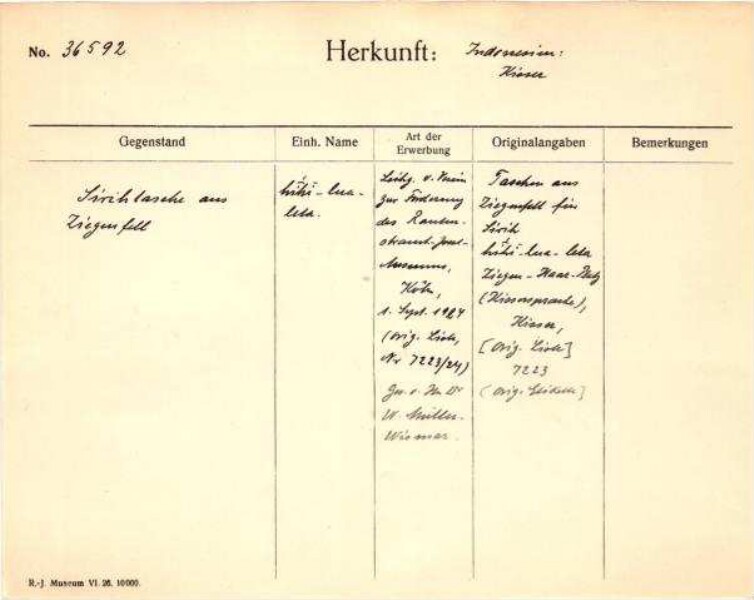 No. 36592
Herkunft: Indonesien:
Kisser
Gegenstand
Einh. Name
Art der
Erwerbung
Originalangaben
Bemerkungen
Sirihtasche aus
Ziegenfell
hihi-lua-
leta.
Leihg. v. Verein
zur Förderung
des Rauten-
strauch-Joest-
Museums,
Köln,
1. Sept. 1927
(orig. Liste,
Nr 7223/24)
Ges. v. Hn Dr
W. Müller-
Wismar.
Taschen aus
Ziegenfell für
Sirih
hihi-lua-leta
Ziegen-Haar-
(Kissersprache),
Kisser,
[orig. Liste]
7223
(orig. Etikette]
R.-J. Museum VI. 26. 10000.